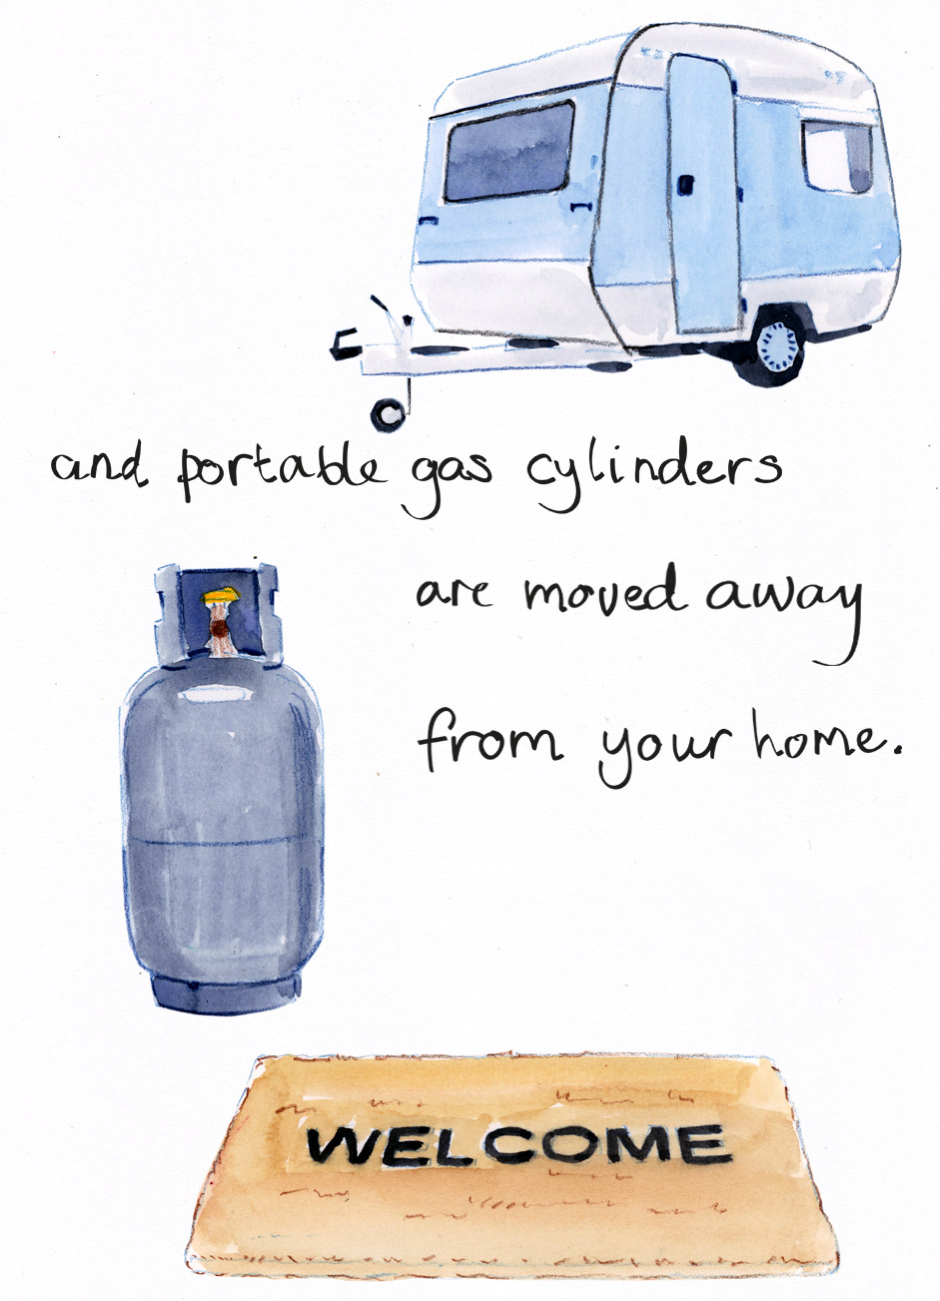 and portable gas cylinders
are moved away
from your home.
WELCOME